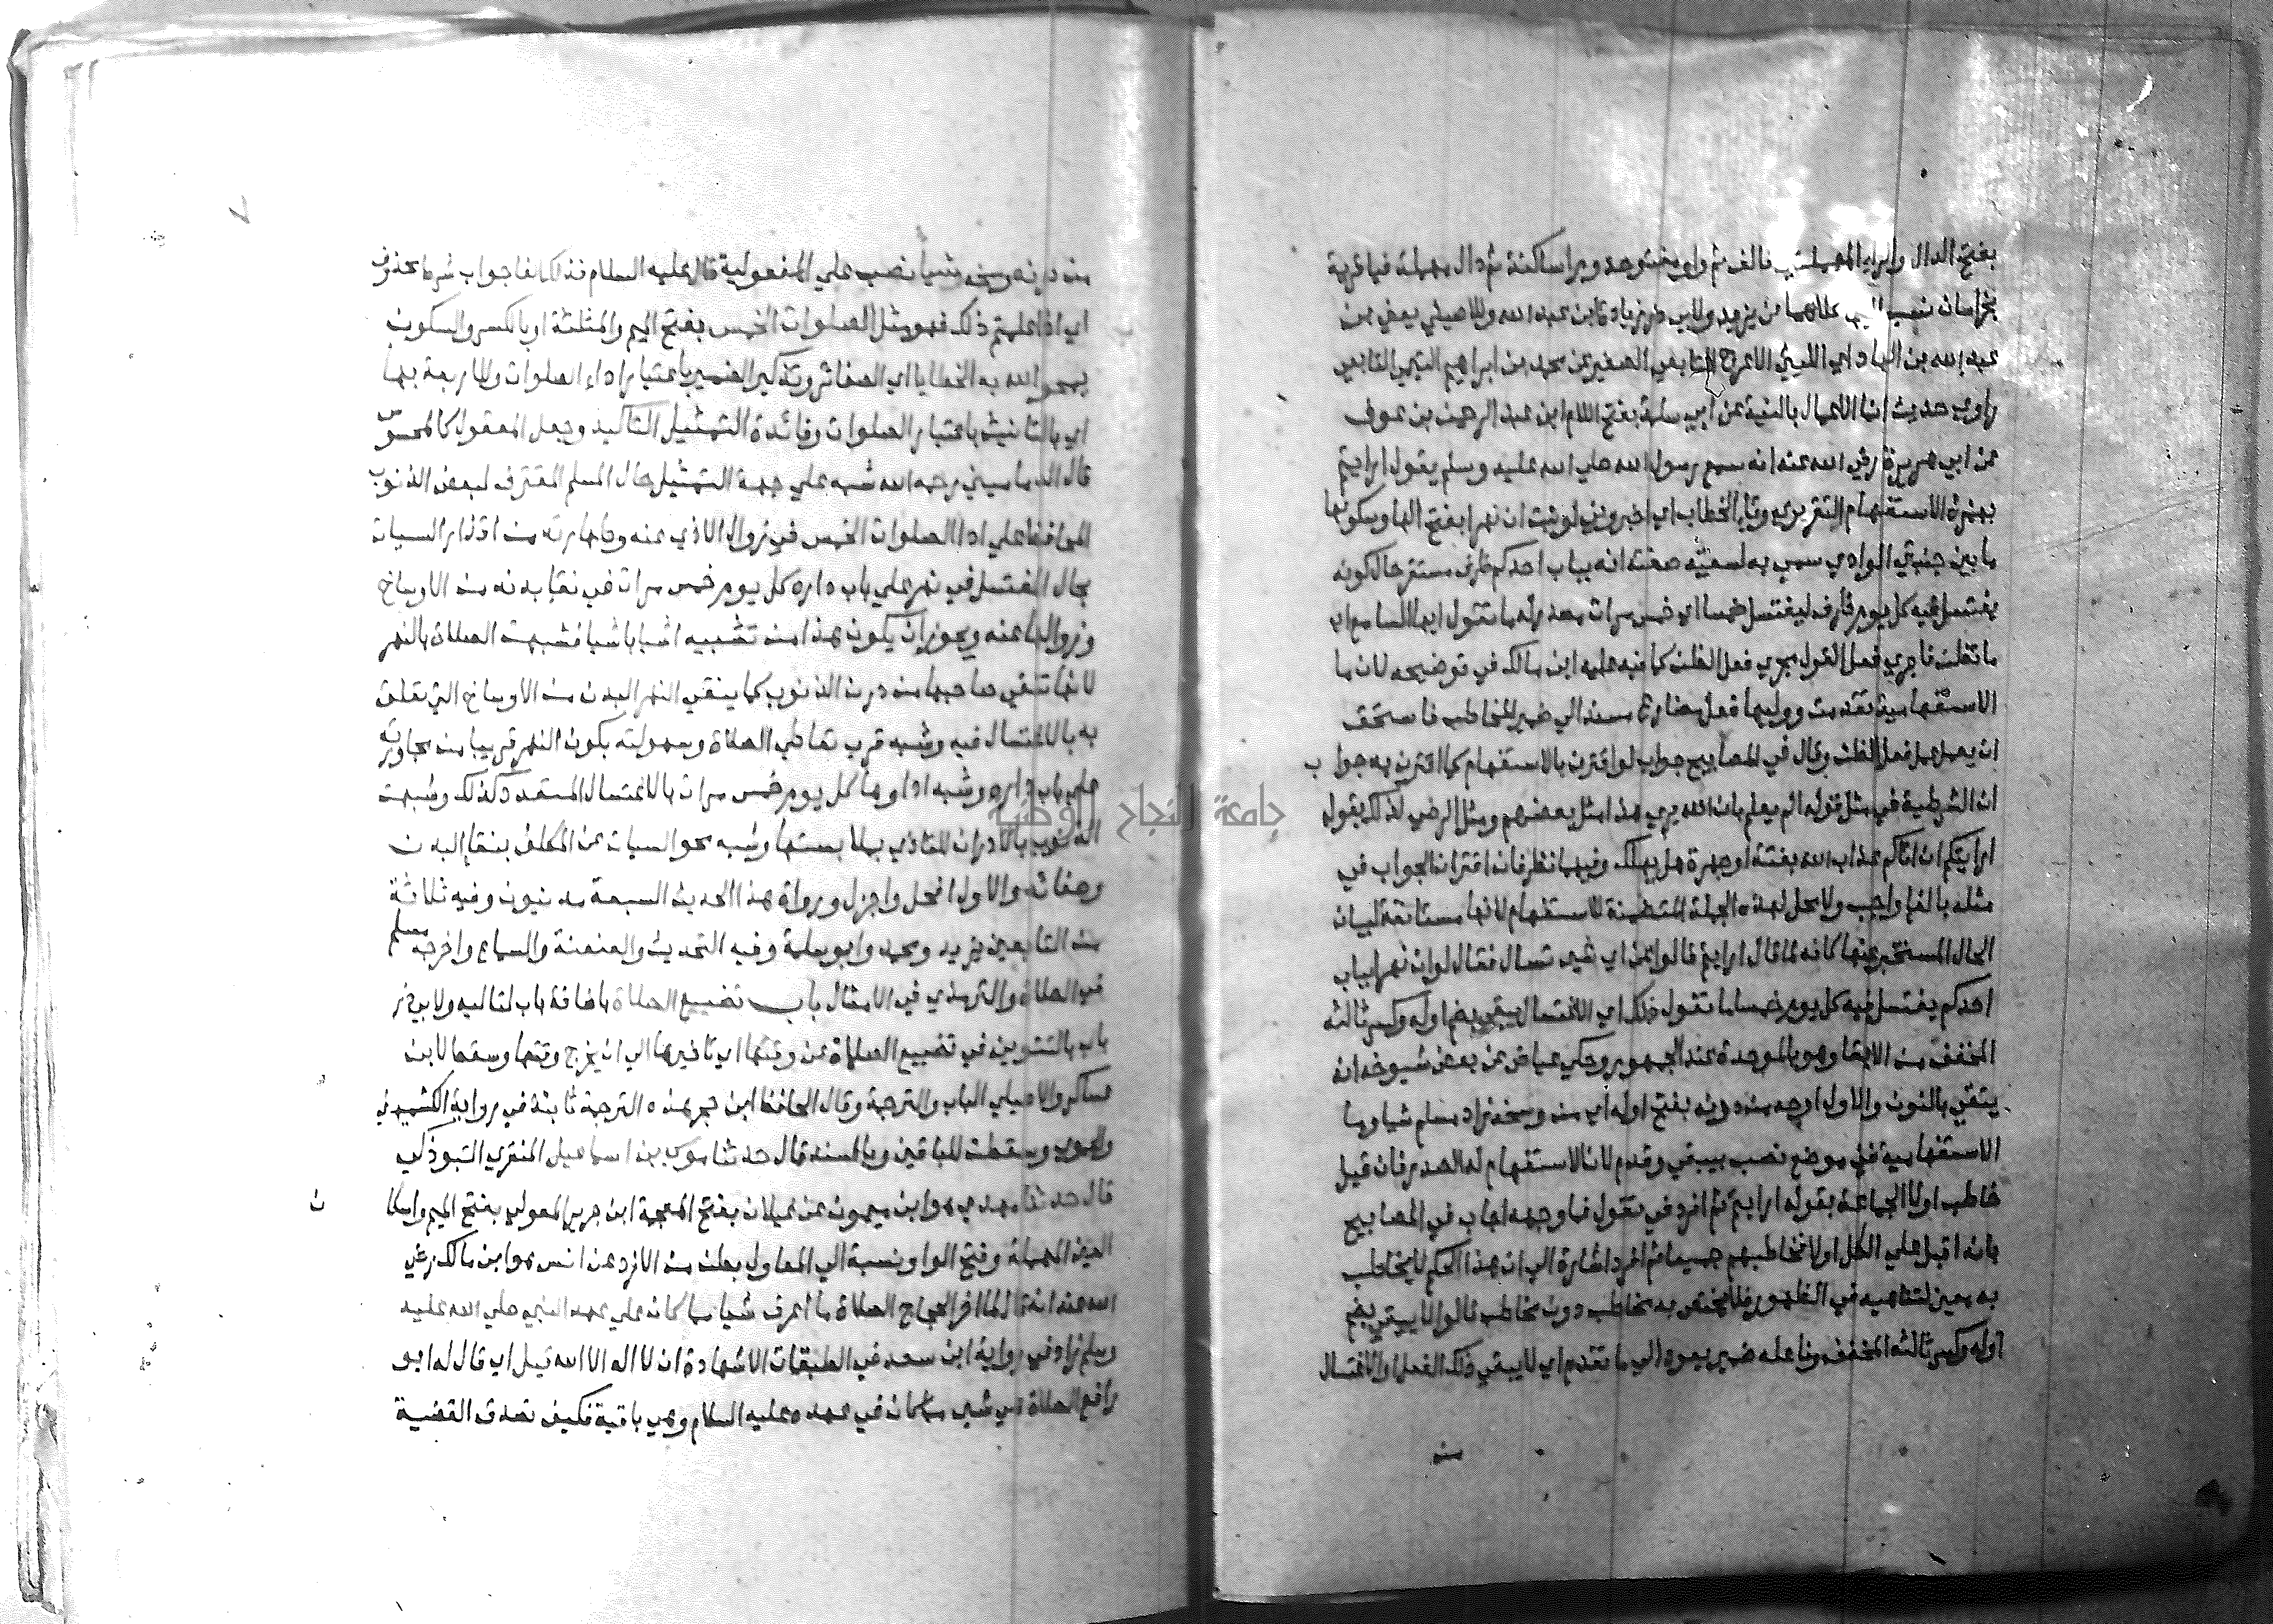 بفتح الدال والراء المهملتين فالف ثم واو مفتوحة وراء ساكنة ثم دال مهملة فياء قرية
بخراسان نسب اليها كلاهما عن يزيد ولابي ذر زيادة ابن عبد الله وللاصيلي يعني بن
عبد الله بن الهاد اي الليثي الاعرج التابعي الصغير عن محمد بن ابراهيم التيمي التابعي
راوي حديث انما الاعمال بالنية عن ابي سلمة بفتح اللام ابن عبد الرحمن بن عوف
عن ابي هريرة رضي الله عنه انه سمع رسول الله صلي الله عليه وسلم يقول ارايتم
بهمزة الاستفهام التقريري وتاء الخطاب اي اخبروني لو ثبت ان نهرا بفتح الها وسكونها
ما بين جنبتي الوادي سمي به لسعته صفته انه بباب احدكم ظرف مستقر حال كونه
يغتسل فيه كل يوم ظرف ليغتسل خمسا اي خمس مرات مصدر له ما تقول ايها السامع اي
ما تظن فاجري فعل القول مجري فعل الظن كما نبه عليه ابن مالك في توضيحه لان ما
الاستفهامية تقدمت ووليها فعل مضارع مسند الي ضمير المخاطب فاستحق
ان يعمل عمل فعل الظن وقال في المصابيح جواب لو اقترن بالاستفهام كما اقترن به جواب
ان الشرطية في مثل قوله الم يعلم بان الله يري هذا مثل بعضهم ومثل الرضي لذلك بقوله
ارايتكم ان اتاكم عذاب الله بغتة او جهرة هل يهلك وفيهما نظر فان اقتران الجواب في
مثله بالفا واجب ولا محل لهذه الجملة المتضمنة للاستفهام لانها مستانفة لبيان
الحال المستخبر عنها كانه لما قال ارايتم قالوا عن اي شي تسال فقال لو ان نهرا بباب
احدكم يغتسل فيه كل يوم خمسا ما تقول ذلك اي الاغتسال يبقي بضم اوله وكسر ثالثه
المخفف من الابقا وهو بالموحدة عند الجمهور وحكي عياض عن بعض شيوخه انه
ينقي بالنون والاول اوجه من درنه بفتح اوله اي من وسخه زاد مسلم شيا وما
الاستفهامية في موضع نصب بيبقي وقدم لان الاستفهام له الصدر فان قيل
خاطب اولا الجماعة بقوله ارايتم ثم افرد في تقول فما وجهه اجاب في المصابيح
بانه اقبل علي الكل اولا فخاطبهم جميعا ثم افرد اشارة الي ان هذا الحكم لا يخاطب
به معين لتناهيه في الظهور فلا يختص به مخاطب دون مخاطب قالوا لا يبقي بضم
اوله وكسر ثالثه المخفف وفاعله ضمير يعود الي ما تقدم اي لا يبقي ذلك الفعل او الاغتسال
من
من درنه وسخه شيأ نصب علي المفعولية قال عليه السلام فذلك الفا جواب شرط محذوف
اي اذا علمتم ذلك فهو مثل الصلوات الخمس بفتح الميم والمثلثة او بالكسر والسكون
يمحو الله به الخطايا اي الصغائر وتذكير الضمير باعتبار اداء الصلوات وللاربعة بها
اي بالتانيث باعتبار الصلوات وفائدة التمثيل التاكيد وجعل المعقول كالمحسوس
قال الدماميني رحمه الله شبه علي جهة التمثيل حال المسلم المقترف لبعض الذنوب
المحافظ علي ادا الصلوات الخمس في زوال الاذي عنه وطهارته من اقذار السيات
بحال المغتسل في نهر علي باب داره كل يوم خمس مرات في نقا بدنه من الاوساخ
وزوالها عنه ويجوز ان يكون هذا من تشبيه اشيا باشيا فشبهت الصلاة بالنهر
لانها تنقي صاحبها من درن الذنوب كما ينقي النهر البدن من الاوساخ التي تعلق
به بالاغتسال فيه وشبه قرب تعاطي الصلاة وسهولته بكون النهر قريبا من مجاورته
علي باب داره وشبه اداوها كل يوم خمس مرات بالاغتسال المتعدد كذلك وشبهت
الذنوب بالادران للتاذي بملابستها وشبه محو السيات عن المكلف بنقا البدن
وصفائه والاول افحل واجزل ورواة هذا الحديث السبعة مدنيون وفيه ثلاثة
من التابعين يزيد ومحمد وابو سلمة وفيه التحديث والعنعنة والسماع واخرجه مسلم
في الصلاة والترمذي في الامثال باب تضييع الصلاة باضافة باب لتاليه ولابي ذر
باب بالتنوين في تضييع الصلاة عن وقتها اي تاخيرها الي ان يخرج وقتها وسقط لابن
عساكر والاصيلي الباب والترجمة وقال الحافظ ابن حجر هذه الترجمة ثابتة في رواية الكشميهني
والحموي وسقطت للباقين وبالسند قال حدثنا موسي بن اسماعيل المنقري التبوذكي
قال حدثنا مهدي هو ابن ميمون عن غيلان بفتح المعجمة ابن جرير المعولي بفتح الميم واسكان
العين المهملة وفتح الواو نسبة الي المعاول بطن من الازد عن انس هو ابن مالك رضي
الله عنه انه قال لما اخر الحجاج الصلاة ما اعرف شيا مما كان علي عهد النبي صلي الله عليه
وسلم زاد في رواية ابن سعد في الطبقات الا شهادة ان لا اله الا الله قيل اي قال له ابو
رافع الصلاة هي شي مما كان في عهده عليه السلام وهي باقية فكيف تصدق القضية
جامعة النجاح الوطنية